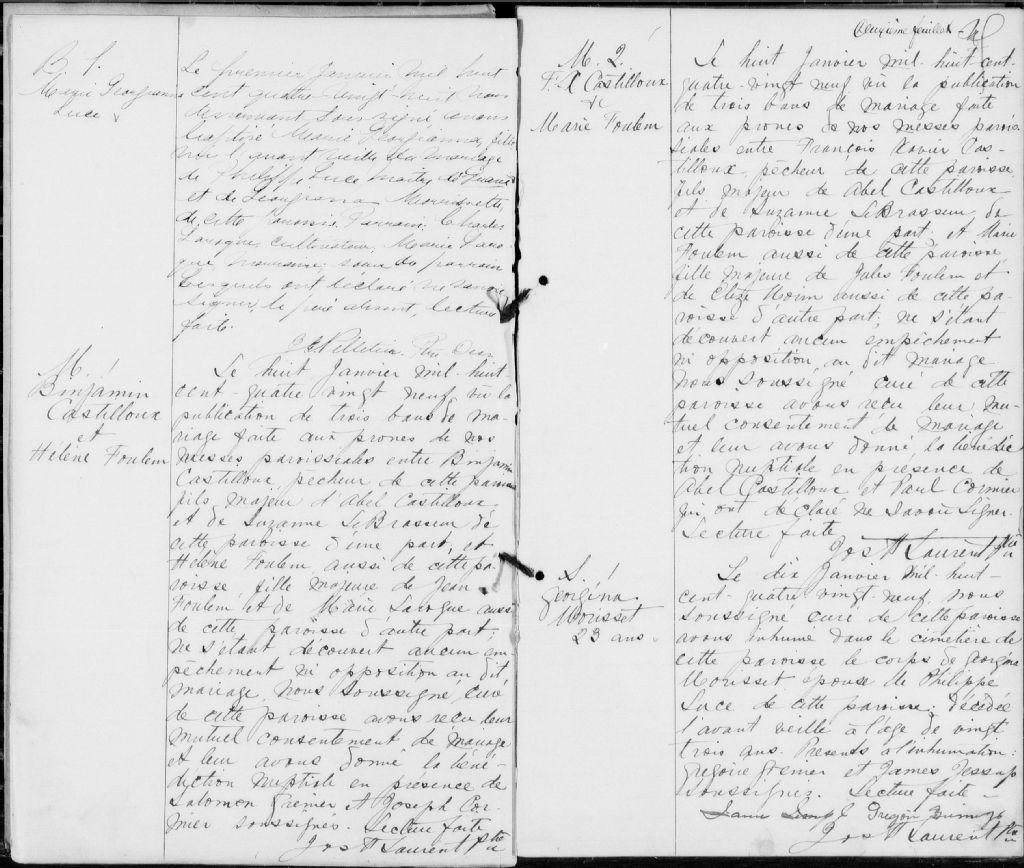 B. 1.
Marie Georgianna
Luce
Le premier Janvier mil huit
cent quatre vingt neuf nous
soussigné avons
baptisé Marie Georgianna, fille
née l'avant veille du mariage
de Philippe Luce
et de Georgianna Morissette
de cette Paroisse Parrain Charles
Larogue, cultivateur, Marie Laro-
gue, marraine, soeur du parrain
lesquels ont déclaré ne savoir
signer, le père absent, lecture
faite.
Pelletier Ptre
M. 1
Binjamin
Castilloux
et
Hélène Foulem
Le huit Janvier mil-huit
cent-quatre vingt neuf, vu la
publication de trois bans de ma-
riage faite aux prones de nos
messes paroissiales entre Binjamin
Castilloux, pêcheur de cette paroisse
fils majeur d'Abel Castilloux
et de Suzanne LeBrasseur de
cette paroisse d'une part, et
Hélène Foulem, aussi de cette pa-
roisse, fille majeure de Jean
Foulem et de Marie Larogue aussi
de cette paroisse d'autre part;
ne s'étant découvert aucun em-
pêchement ni opposition au dit
mariage, Nous Soussigné, curé
de cette paroisse avons reçu leur
mutuel consentement de mariage
et leur avons donné la béné-
diction nuptiale en présence de
Salomon Grenier et Joseph Cor-
mier soussignés. Lecture faite
Jos H Laurent Ptre
Deuxième feuillet
M. 2.
F. X Castilloux
&
Marie Foulem
Le huit Janvier mil-huit-cent-
quatre-vingt neuf vu la publication
de trois bans de mariage faite
aux prones de nos messes parois-
siales entre François Xavier Cas-
tilloux, pêcheur de cette paroisse,
fils majeur de Abel Castilloux
et de Suzanne LeBrasseur de
cette paroisse d'une part, et Marie
Foulem aussi de cette paroisse,
fille majeure de Jules Foulem et
de Elize aussi de cette pa-
roisse d'autre part; ne s'étant
découvert aucun empêchement
ni opposition, au dit mariage
Nous Soussigné curé de cette
paroisse avons reçu leur mu-
tuel consentement de mariage
et leur avons donné la bénédic
tion nuptiale en présence de
Abel Castilloux et Paul Cormier
qui ont déclaré ne savoir signer.
Lecture faite
Jos H Laurent Ptre
S. 1
Georgéna
Morisset
23 ans
Le dix Janvier mil-huit-
cent-quatre vingt-neuf, nous
soussigné curé de cette paroisse
avons inhumé dans le cimetière de
cette paroisse le corps de Georgéna
Morisset épouse de Philippe
Luce de cette paroisse, décédée
l'avant veille à l'âge de vingt
trois ans. Presents à l'inhumation:
Grégoire Grenier et James Jessop
soussignez. Lecture faite -
Jos H Laurent Ptre